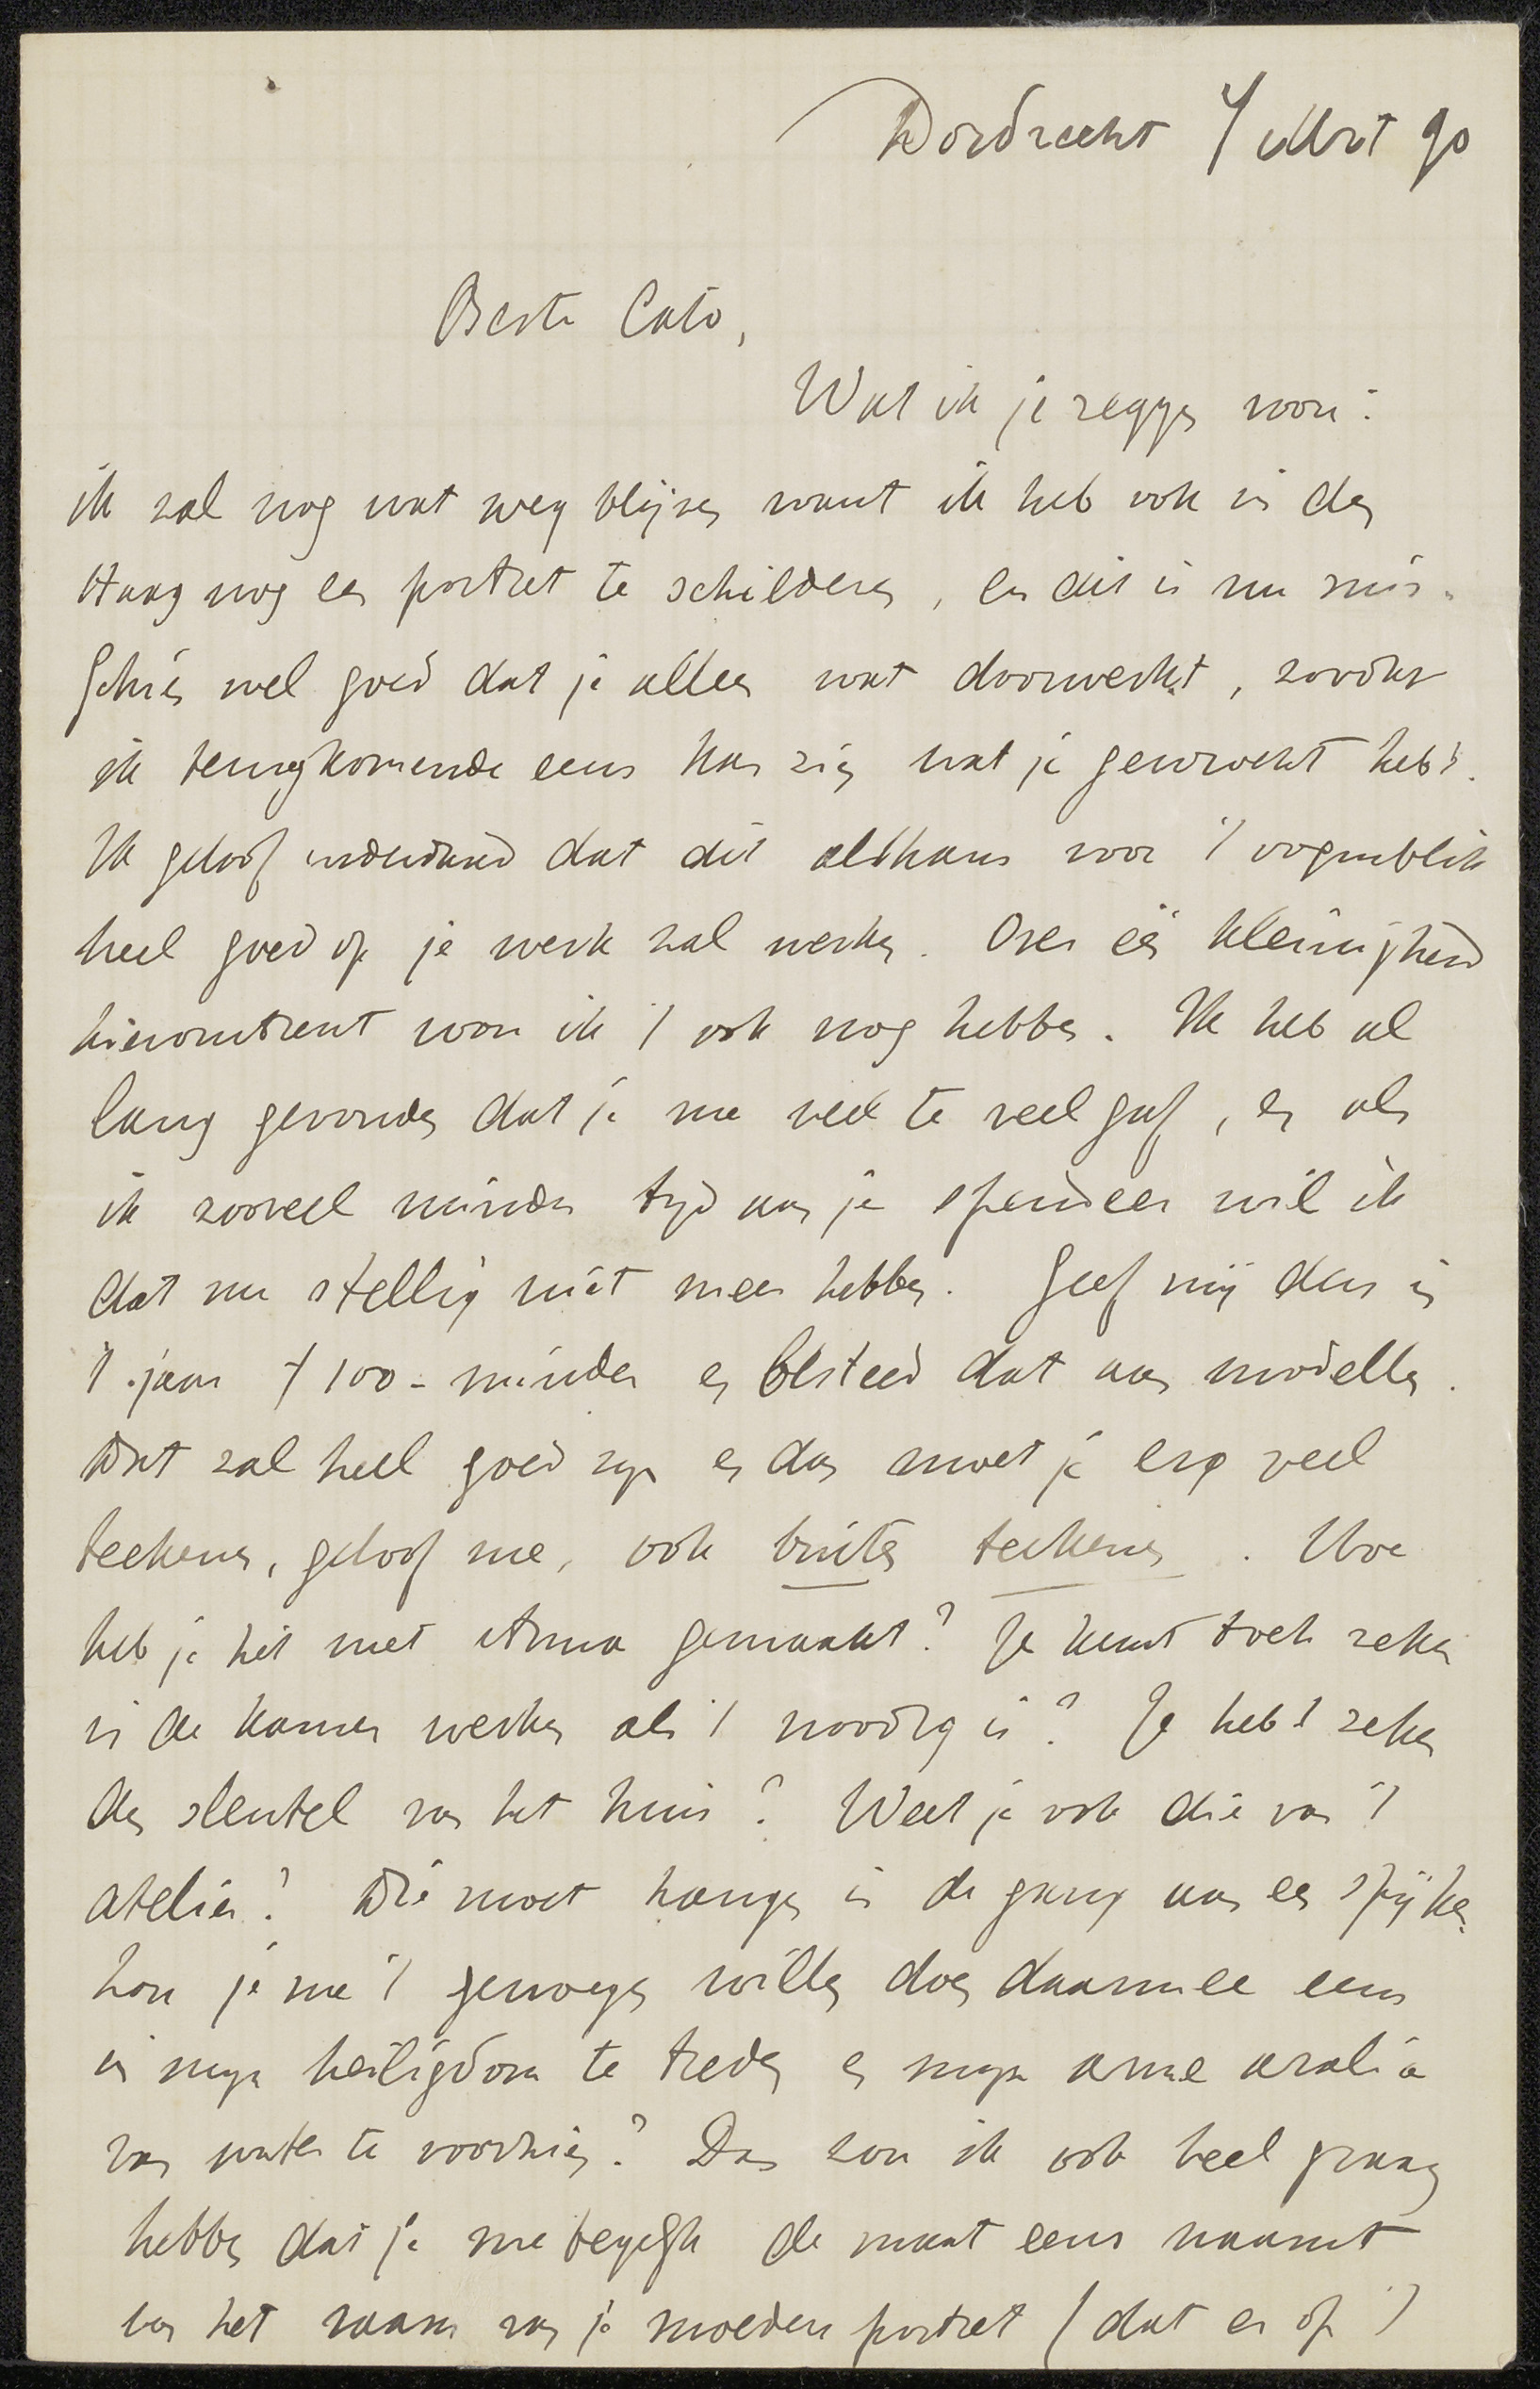 Dordrecht 4 Mrt 90
Beste Cato,
Wat ik je zeggen wou:
ik zal nog wat weg blijven want ik heb ook in den
Haag nog een portret te schilderen, en dit is nu mis-
schien wel goed dat je alleen wat doorwerkt, zoodat
ik terugkomende eens kan zien wat je gewrocht hebt.
Ik geloof inderdaad dat dit althans voor 't oogenblik
heel goed op je werk zal werken. Over één kleinigheid
hieromtrent wou ik 't ook nog hebben. Ik heb al
lang gevonden dat je me veel te veel gaf, en als
ik zooveel minder tijd aan je spendeer wil ik
dat nu stellig niet meer hebben. Geef mij dus in
't jaar f 100- minder en besteed dat aan modellen.
Dat zal heel goed zijn en dan moet je erg veel
teekenen, geloof me, ook buiten teekenen. Hoe
heb je het met Anna gemaakt? Je kunt toch zeker
in de kamer werken als 't noodig is? Je hebt zeker
den sleutel van het huis? Weet je ook die van 't
atelier? Die moet hangen in de gang aan een spijker.
Zou je me 't genoegen willen doen daarmee eens
in mijn heiligdom te treden en mijn arme aralia
van water te voorzien? Dan zou ik ook heel graag
hebben dat je me tegelijk de maat eens naamt
van het raam van je moeders portret (dat er op 't